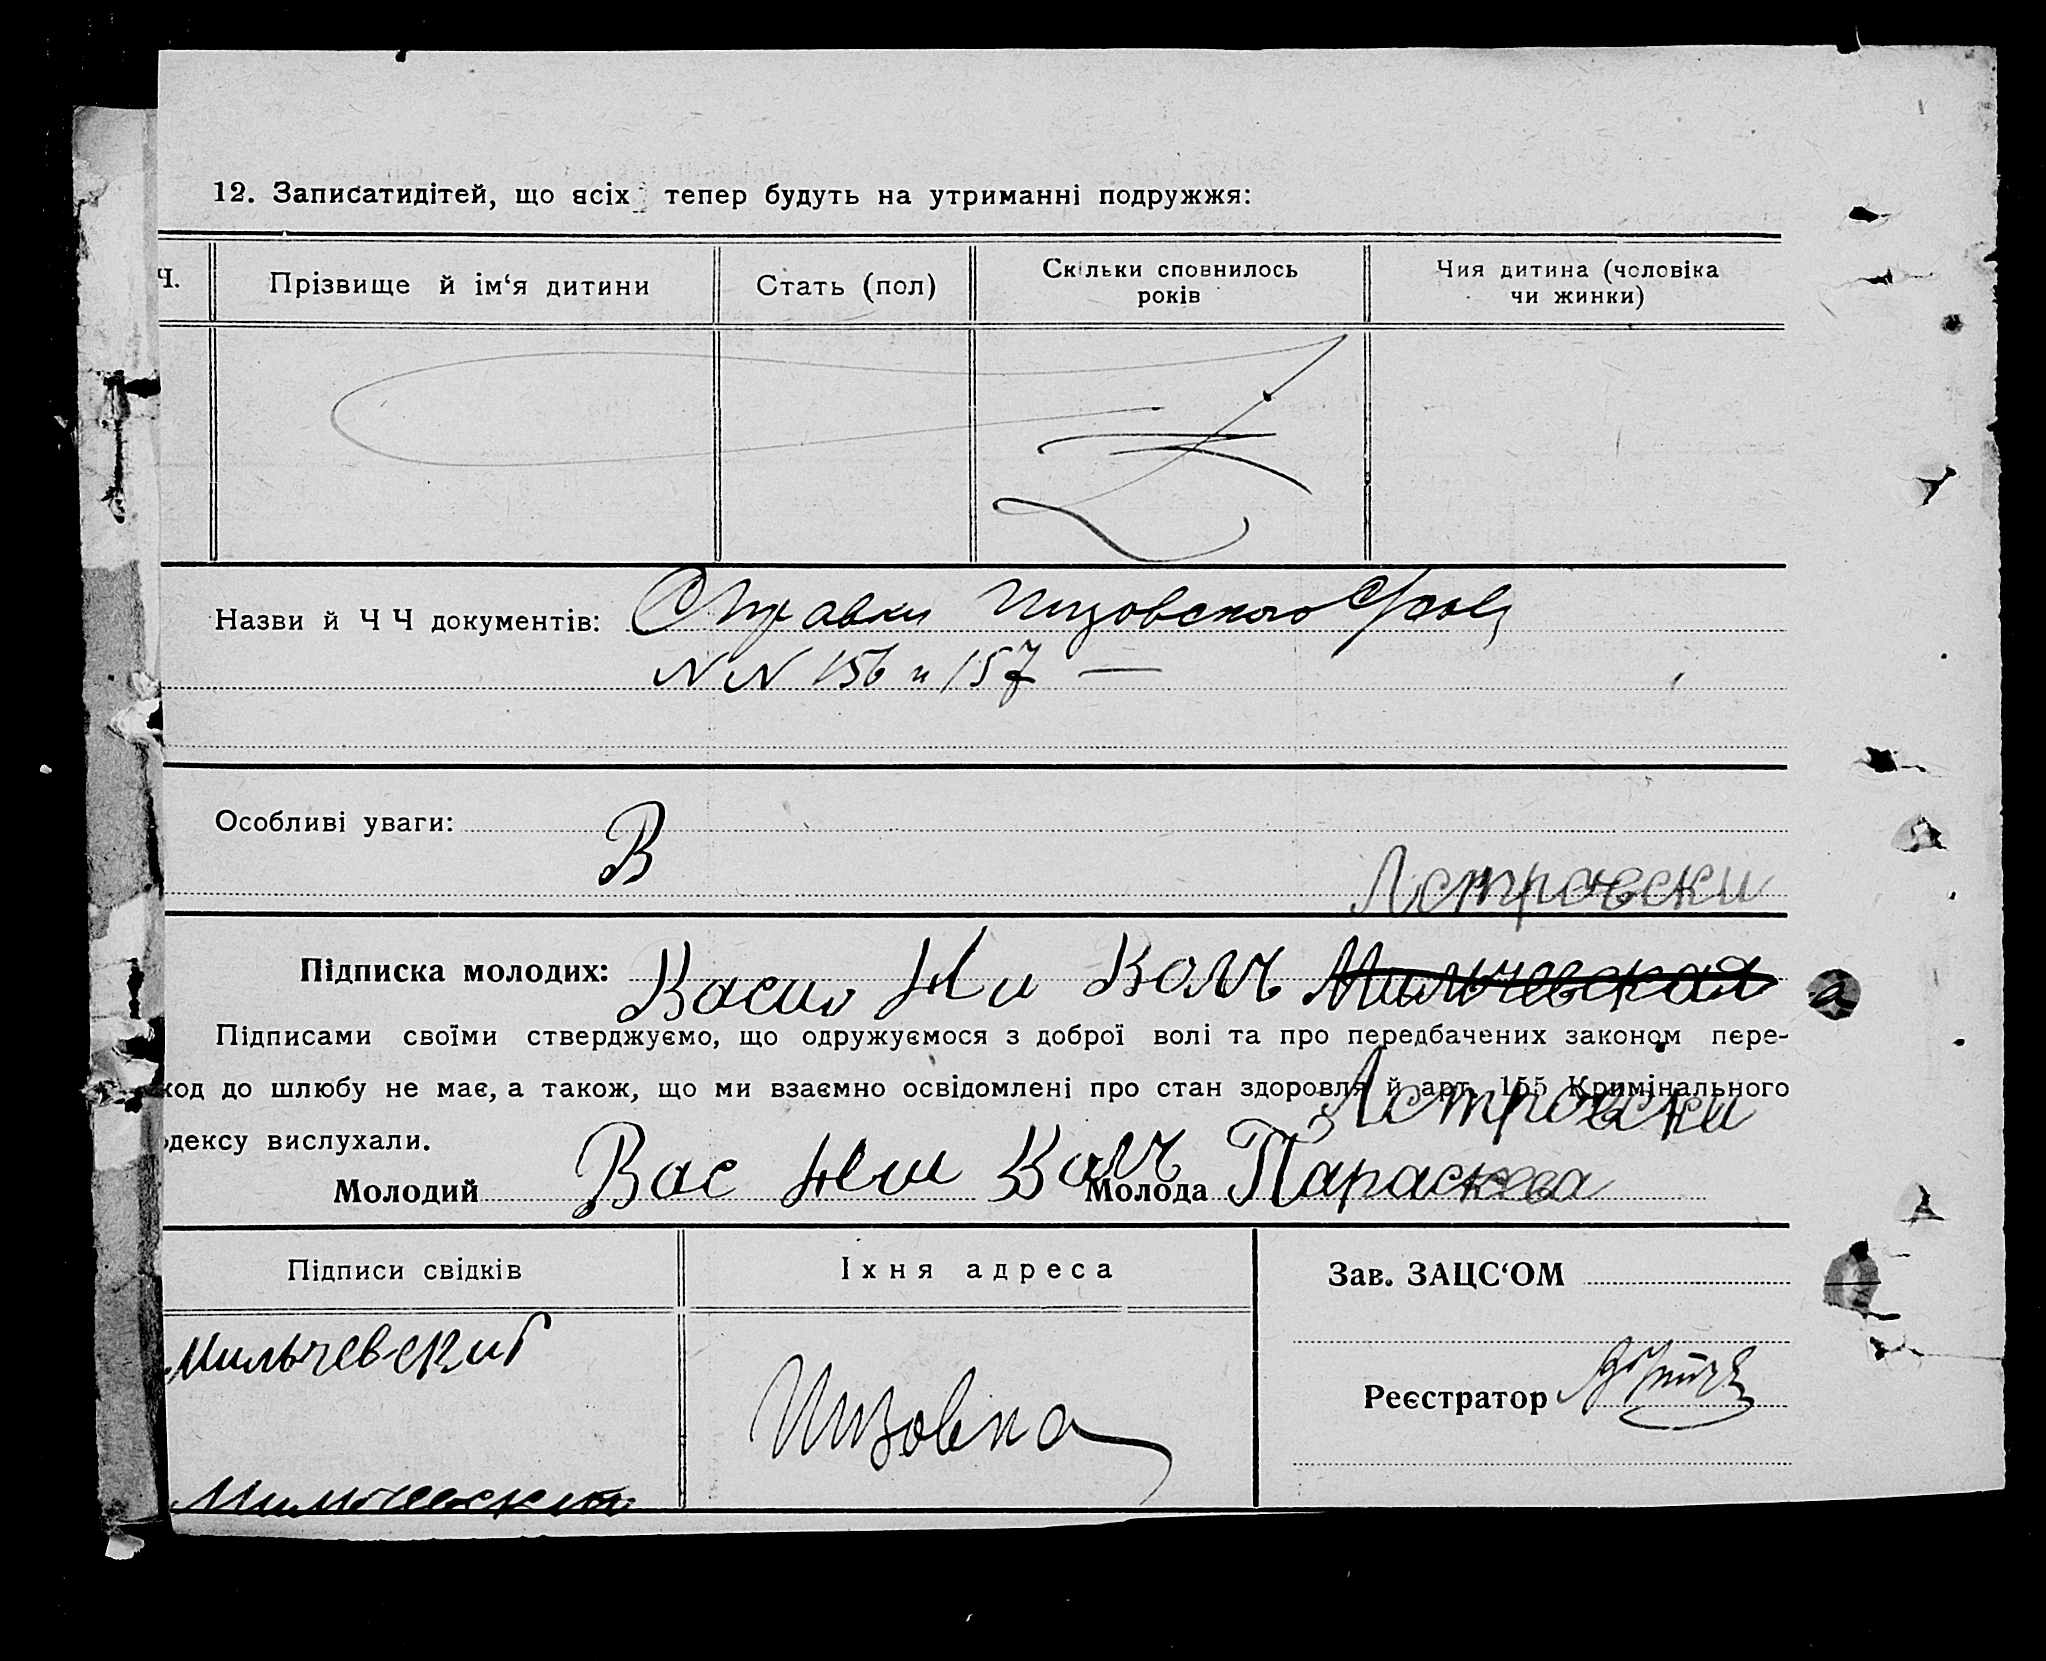 12. Записатидітей, що всіх тепер будуть на утриманні подружжя:
Ч.
Прізвище й ім‘я дитини
Стать (пол)
Скільки сповнилось
років
Чия дитина (чоловіка
чи жинки)
Назви й Ч Ч документів: Справки
N N 156 и 157 —
Особливі уваги:
В
Підписка молодих: Мильчевская
Підписами своїми стверджуємо, що одружуємося з доброї волі та про передбачених законом пере-
код до шлюбу не має, а також, що ми взаємно освідомлені про стан здоровля й арт. 155 Кримінального
одексу вислухали.
Молодий Вас Молода Параскева
Підписи свідків
Їхня адреса
Зав. ЗАЦС‘ОМ
Мильчевский
Реєстратор